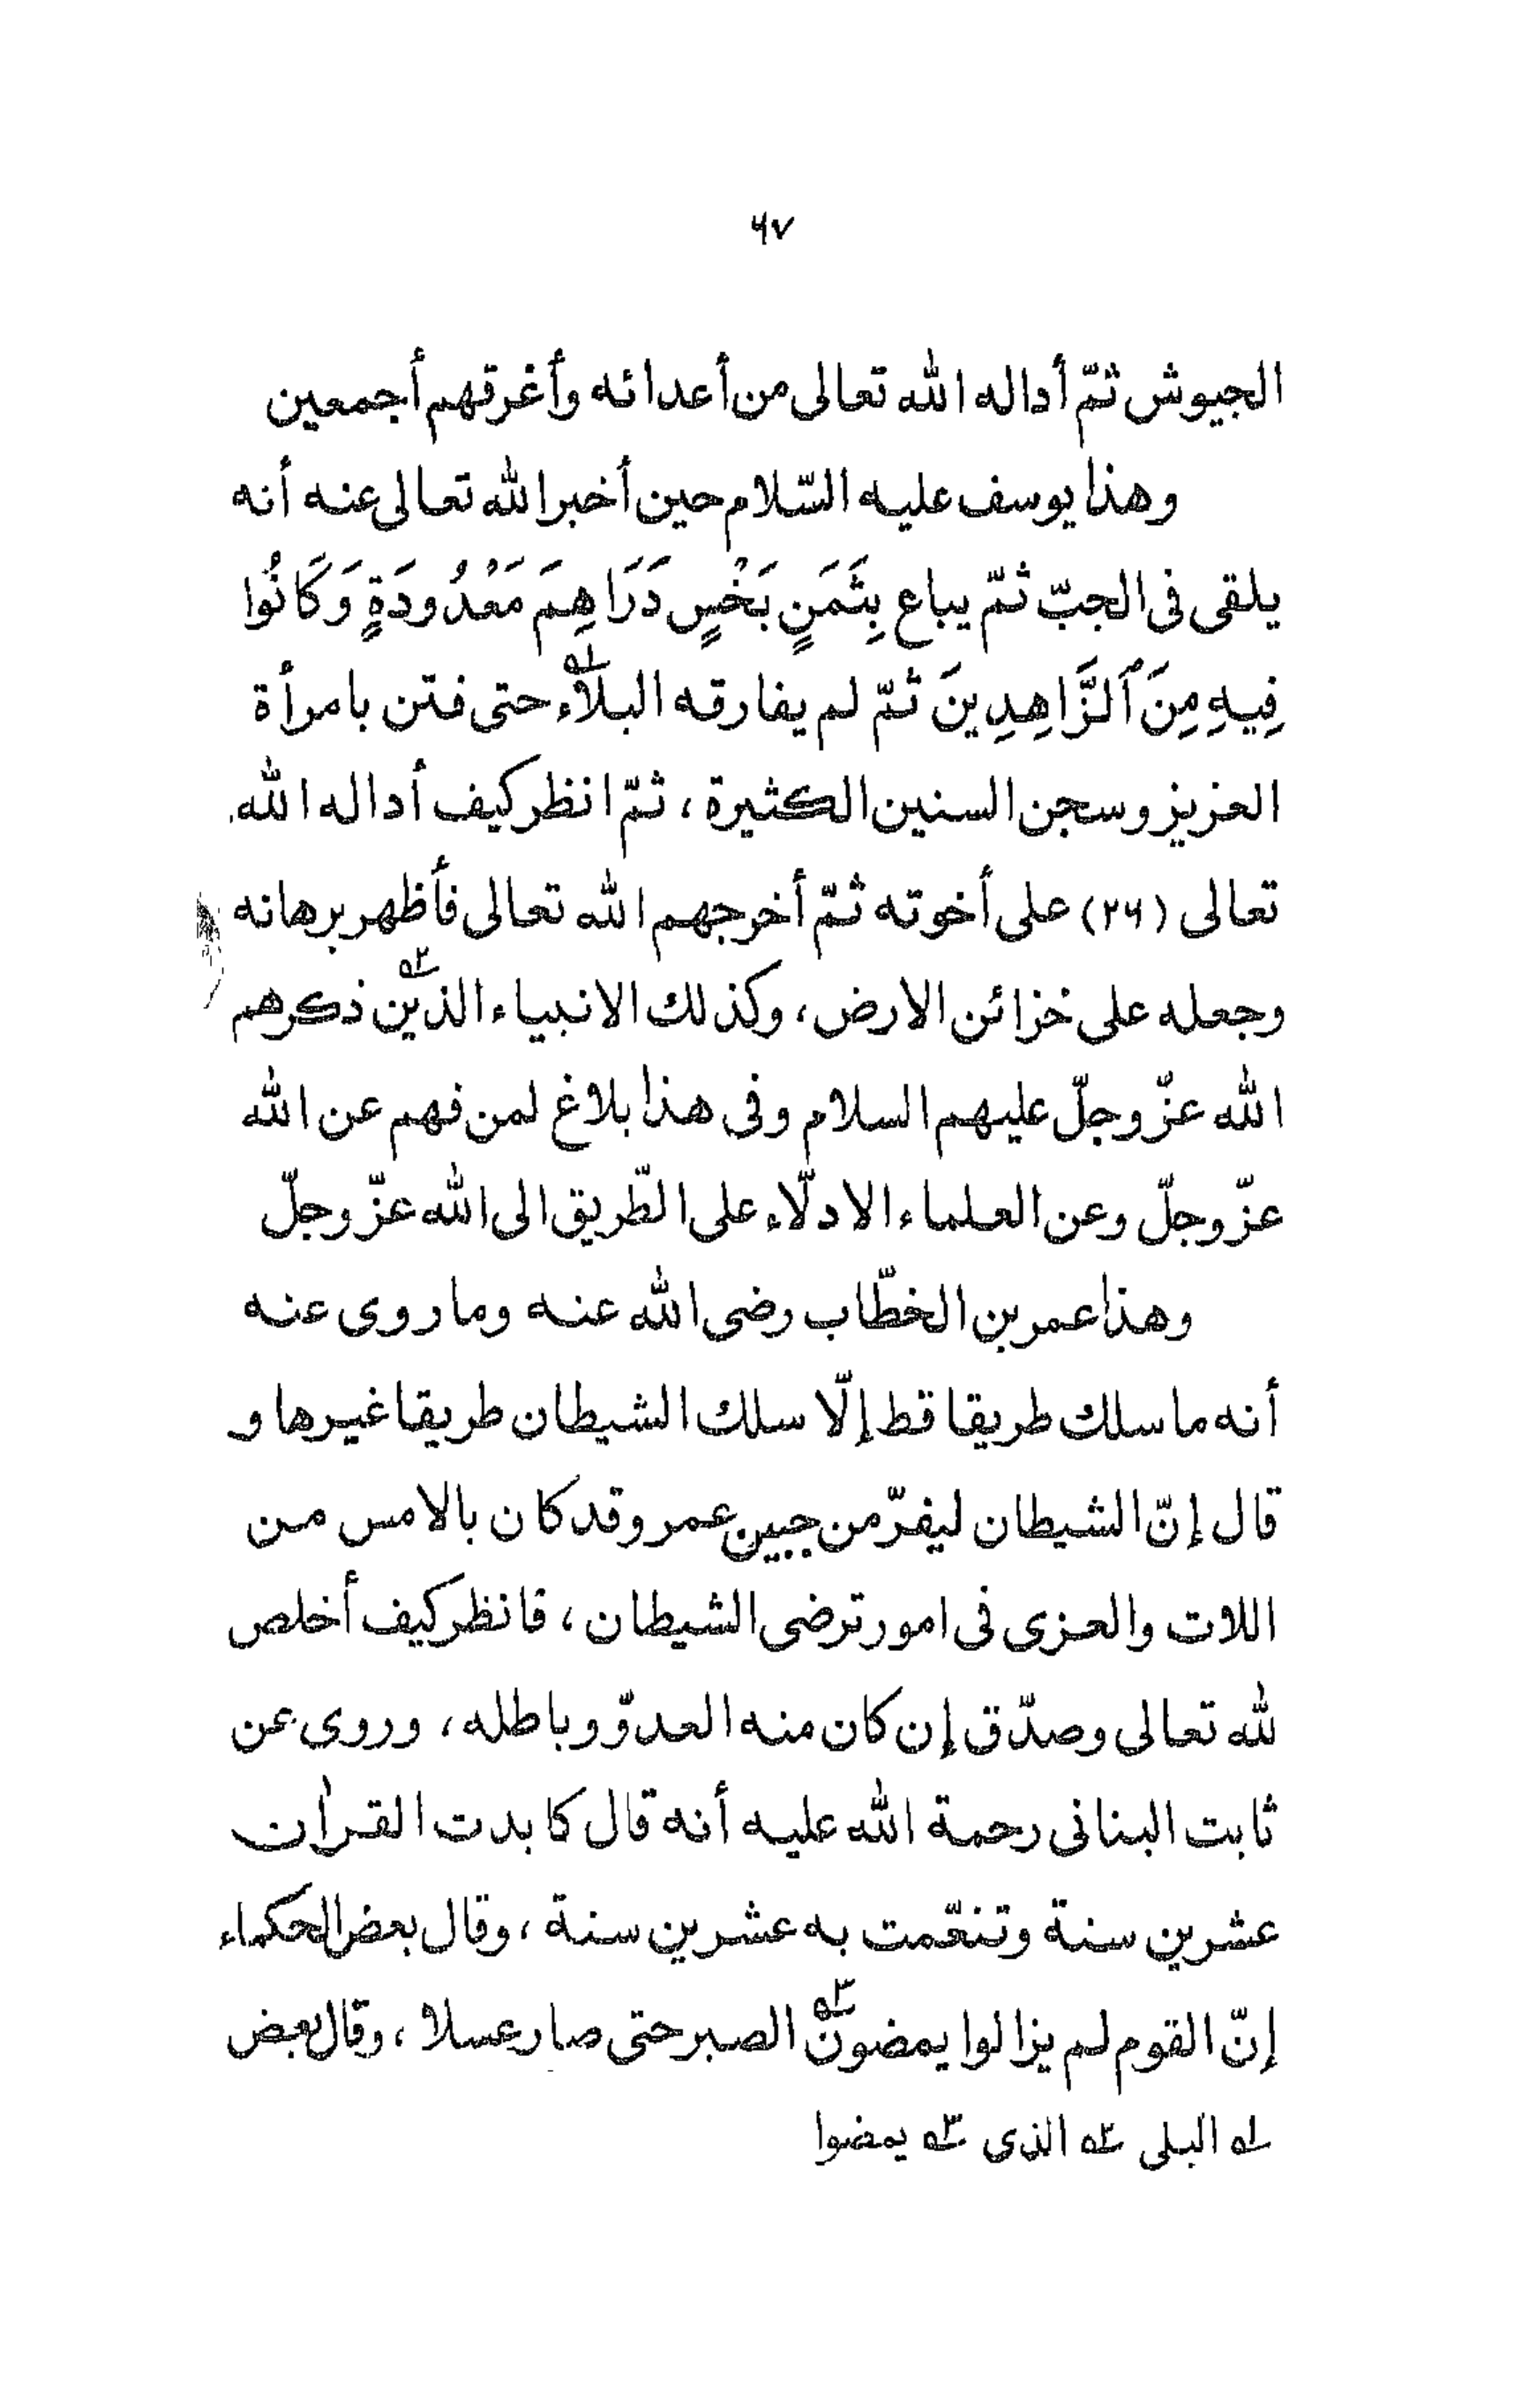 ۶۷
الجيوش ثمّ أداله الله تعالى من أعدائه وأغرقهم أجمعين
وهذا يوسف عليه السّلام حين أخبر الله تعالى عنه أنه
يلقى فى الجبّ ثمّ يباع بِثَمَنٍ بَخْسٍ دَرَاهِمَ مَعْدُودَةٍ وَكَانُوا
فِيهِ مِنَ ٱلزَّاهِدِينَ ثمّ لم يفارقه البلاء۱ حتى فتن بامرأة
العزيز وسجن السنين الكثيرة، ثمّ انظر كيف أداله الله
تعالى (۲۶) على أخوته ثمّ أخرجهم الله تعالى فأظهر برهانه
وجعله على خزائن الارض، وكذلك الانبياء الذين۲ ذكرهم
الله عزّ وجلّ عليهم السلام وفى هذا بلاغ لمن فهم عن الله
عزّ وجلّ وعن العلماء الادلّاء على الطّريق الى الله عزّ وجلّ
وهذا عمر بن الخطّاب رضى الله عنه وما روى عنه
أنه ما سلك طريقا قط إلّا سلك الشيطان طريقا غيرها و
قال إنّ الشيطان ليفرّ من جبين عمر وقد كان بالامس من
اللات والعزى فى امور ترضى الشيطان، فانظر كيف أخلص
لله تعالى وصدّق إن كان منه العدوّ وباطله، وروى عن
ثابت البنانى رحمة الله عليه أنه قال كابدت القرأن
عشرين سنة وتنعّمت به عشرين سنة، وقال بعض الحكماء
إنّ القوم لم يزالوا يمضون۳ الصبر حتى صار عسلا، وقال بعض
۱ البلى ۲ الذى ۳ يمضوا